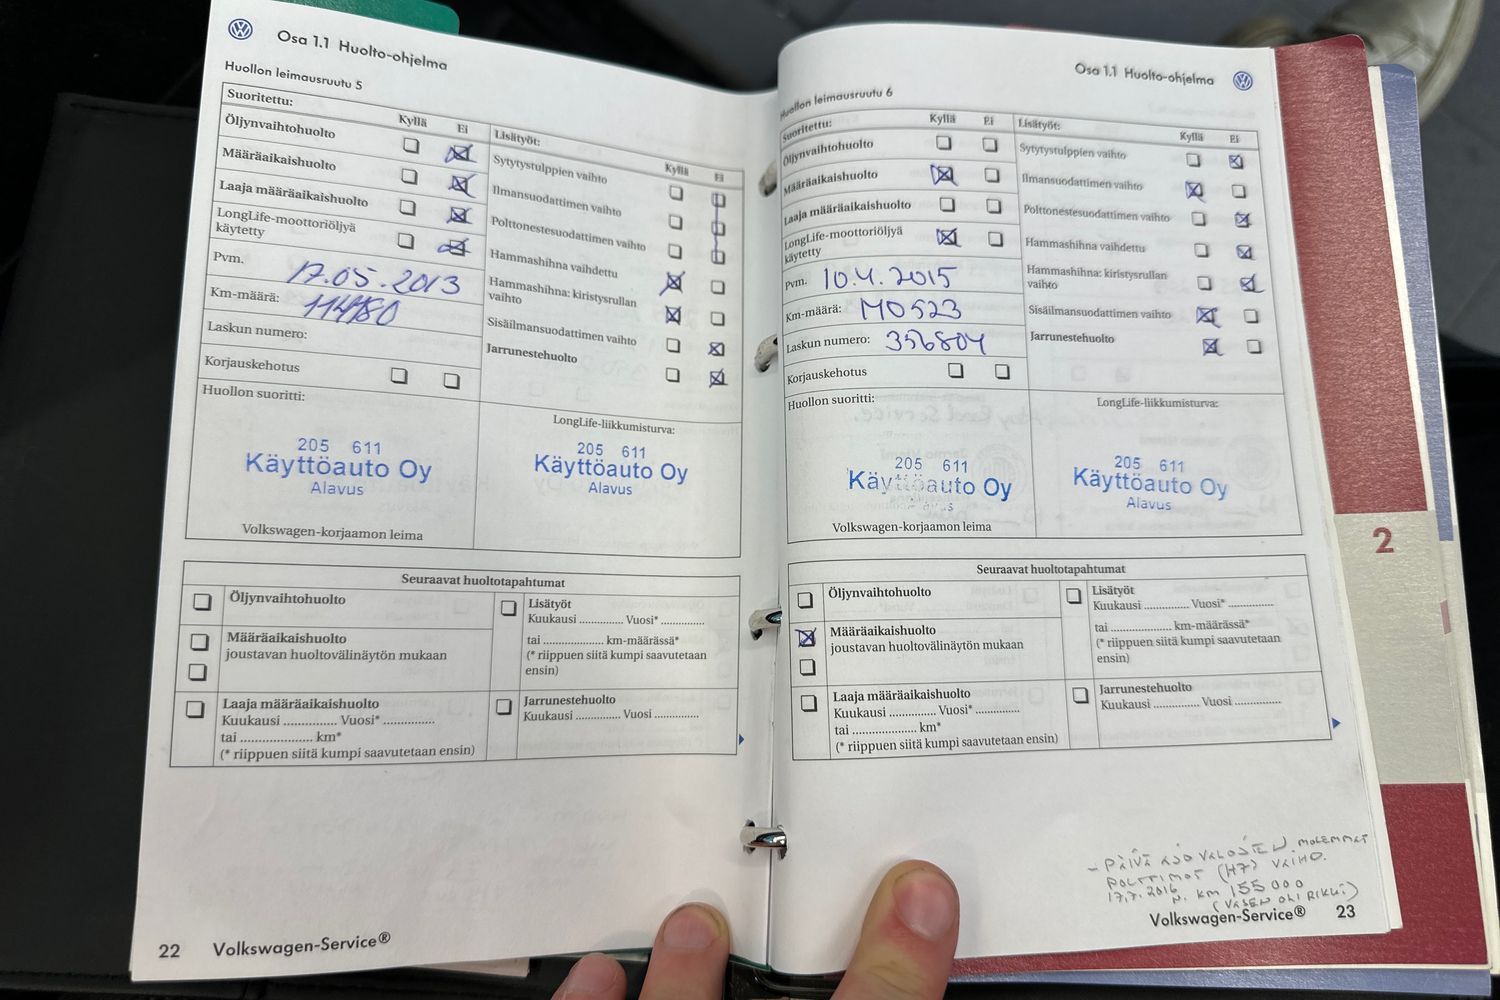 Osa 1.1 Huolto-ohjelma
Huollon leimausruutu 5
Suoritettu:
Kyllä Ei
Öljynvaihtohuolto
Määräaikaishuolto
Laaja määräaikaishuolto
LongLife-moottoriöljyä
käytetty
Pvm. 17.05.2013
Km-määrä: 114180
Laskun numero:
Korjauskehotus
Lisätyöt:
Kyllä Ei
Sytytystulppien vaihto
Ilmansuodattimen vaihto
Polttonestesuodattimen vaihto
Hammashihna vaihdettu
Hammashihna: kiristysrullan
vaihto
Sisäilmansuodattimen vaihto
Jarrunestehuolto
Huollon suoritti:
205 611
Käyttöauto Oy
Alavus
Volkswagen-korjaamon leima
LongLife-liikkumisturva:
205 611
Käyttöauto Oy
Alavus
Seuraavat huoltotapahtumat
Öljynvaihtohuolto
Määräaikaishuolto
joustavan huoltovälinäytön mukaan
Laaja määräaikaishuolto
Kuukausi .............. Vuosi* ..............
tai .................... km*
(* riippuen siitä kumpi saavutetaan ensin)
Lisätyöt
Kuukausi ............. Vuosi* .............
tai .................. km-määrässä*
(* riippuen siitä kumpi saavutetaan
ensin)
Jarrunestehuolto
Kuukausi ............. Vuosi .............
22 Volkswagen-Service®
Osa 1.1 Huolto-ohjelma
Huollon leimausruutu 6
Suoritettu:
Kyllä Ei
Öljynvaihtohuolto
Määräaikaishuolto
Laaja määräaikaishuolto
LongLife-moottoriöljyä
käytetty
Pvm. 10.4.2015
Km-määrä: 140523
Laskun numero: 356804
Korjauskehotus
Lisätyöt:
Kyllä Ei
Sytytystulppien vaihto
Ilmansuodattimen vaihto
Polttonestesuodattimen vaihto
Hammashihna vaihdettu
Hammashihna: kiristysrullan
vaihto
Sisäilmansuodattimen vaihto
Jarrunestehuolto
Huollon suoritti:
205 611
Käyttöauto Oy
Alavus
Volkswagen-korjaamon leima
LongLife-liikkumisturva:
205 611
Käyttöauto Oy
Alavus
Seuraavat huoltotapahtumat
Öljynvaihtohuolto
Määräaikaishuolto
joustavan huoltovälinäytön mukaan
Laaja määräaikaishuolto
Kuukausi .............. Vuosi* ..............
tai .................... km*
(* riippuen siitä kumpi saavutetaan ensin)
Lisätyöt
Kuukausi .............. Vuosi* ..............
tai .................... km-määrässä*
(* riippuen siitä kumpi saavutetaan
ensin)
Jarrunestehuolto
Kuukausi .............. Vuosi ..............
- PÄIVÄ AJO VALOJEN MOLEMMAT
POLTTIMOT (H7) VAIHD.
17.7.2016 N. KM 155000
(VASEN OLI RIKKI)
Volkswagen-Service® 23
2